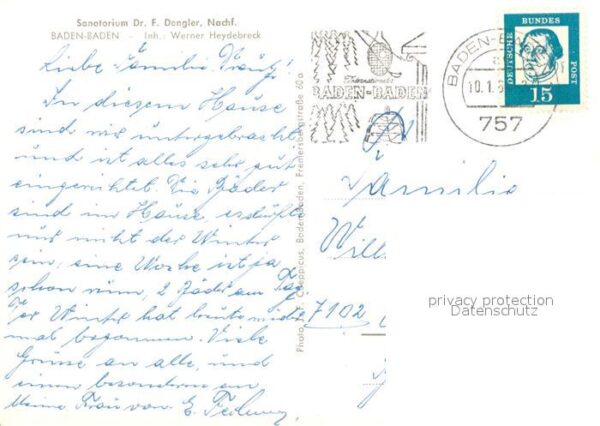 Sanatorium Dr. F. Dengler, Nachf.
BADEN-BADEN - Inh.: Werner Heydebreck
Liebe Familie
In diesem Hause
sind wir untergebracht
und ist alles sehr gut
eingerichtet. Die Bäder
sind im Hause,
nur nicht der Winter
sein, eine Woche ist ja
schon rum, 2 Bäder am Tag,
Der Winter hat heute wieder
mal begonnen. Viele
Grüsse an alle, und
einen besonderen an
Ihre Frau von E.
Photo A. F. Coeppicus, Baden-Baden, Fremersbergstraße 60a
BADEN-BADEN
BADEN-
10.1.
757
DEUTSCHE BUNDESPOST
15
Familie
Will
7102
privacy protection
Datenschutz